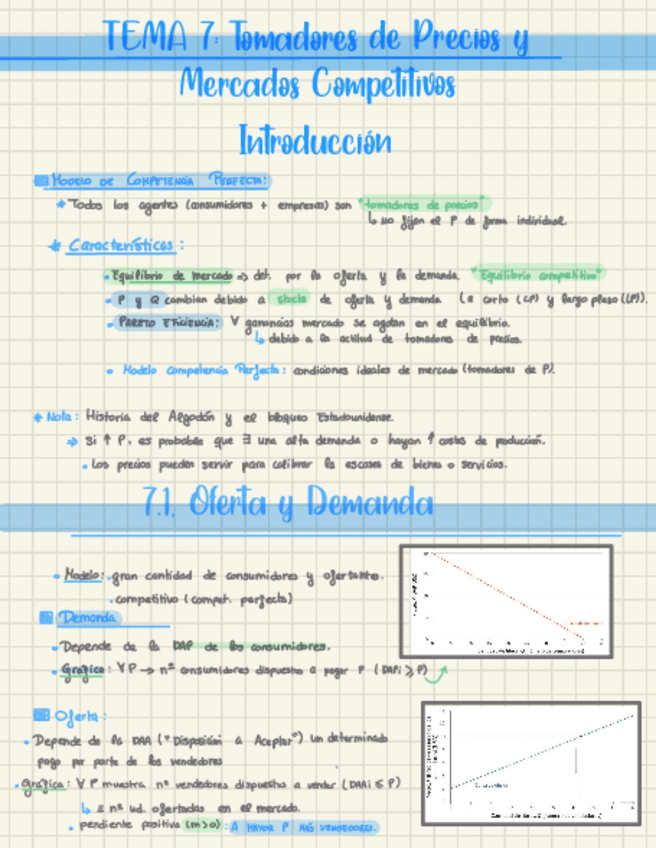 TEMA 7: Tomadores de Precios y
Mercados Competitivos
Introducción
Modelo de Competencia Perfecta:
* Todos los agentes (consumidores + empresas) son "tomadores de precios"
↳ no fijan el P de forma individual.
* Características:
• Equilibrio de mercado => det. por la oferta y la demanda. "Equilibrio competitivo"
• P y Q cambian debido a shocks de oferta y demanda (a corto (CP) y largo plazo (LP)).
• PARETO EFICIENCIA: ∀ ganancias mercado se agotan en el equilibrio.
↳ debido a la actitud de tomadores de precios.
• Modelo Competencia Perfecta: condiciones ideales de mercado (tomadores de P).
* Nota: Historia del Algodón y el bloqueo Estadounidense.
⇒ Si ↑ P, es probable que ∃ una alta demanda o hayan ↑ costes de producción.
• Los precios pueden servir para calibrar la escasez de bienes o servicios.
7.1. Oferta y Demanda
• Modelo: • gran cantidad de consumidores y ofertantes.
• competitivo (compet. perfecta)
Demanda
• Depende de la DAP de los consumidores.
• Gráfica: ∀ P → nº consumidores dispuestos a pagar P (DAPi ≥ P)
Oferta:
• Depende de la DAA ("Disposición a Aceptar") un determinado
pago por parte de los vendedores
• Gráfica: ∀ P muestra nº vendedores dispuestos a vender (DAAi ≤ P)
↳ ≡ nº ud. ofertadas en el mercado.
• pendiente positiva (m>0): A MAYOR P MÁS VENDEDORES.